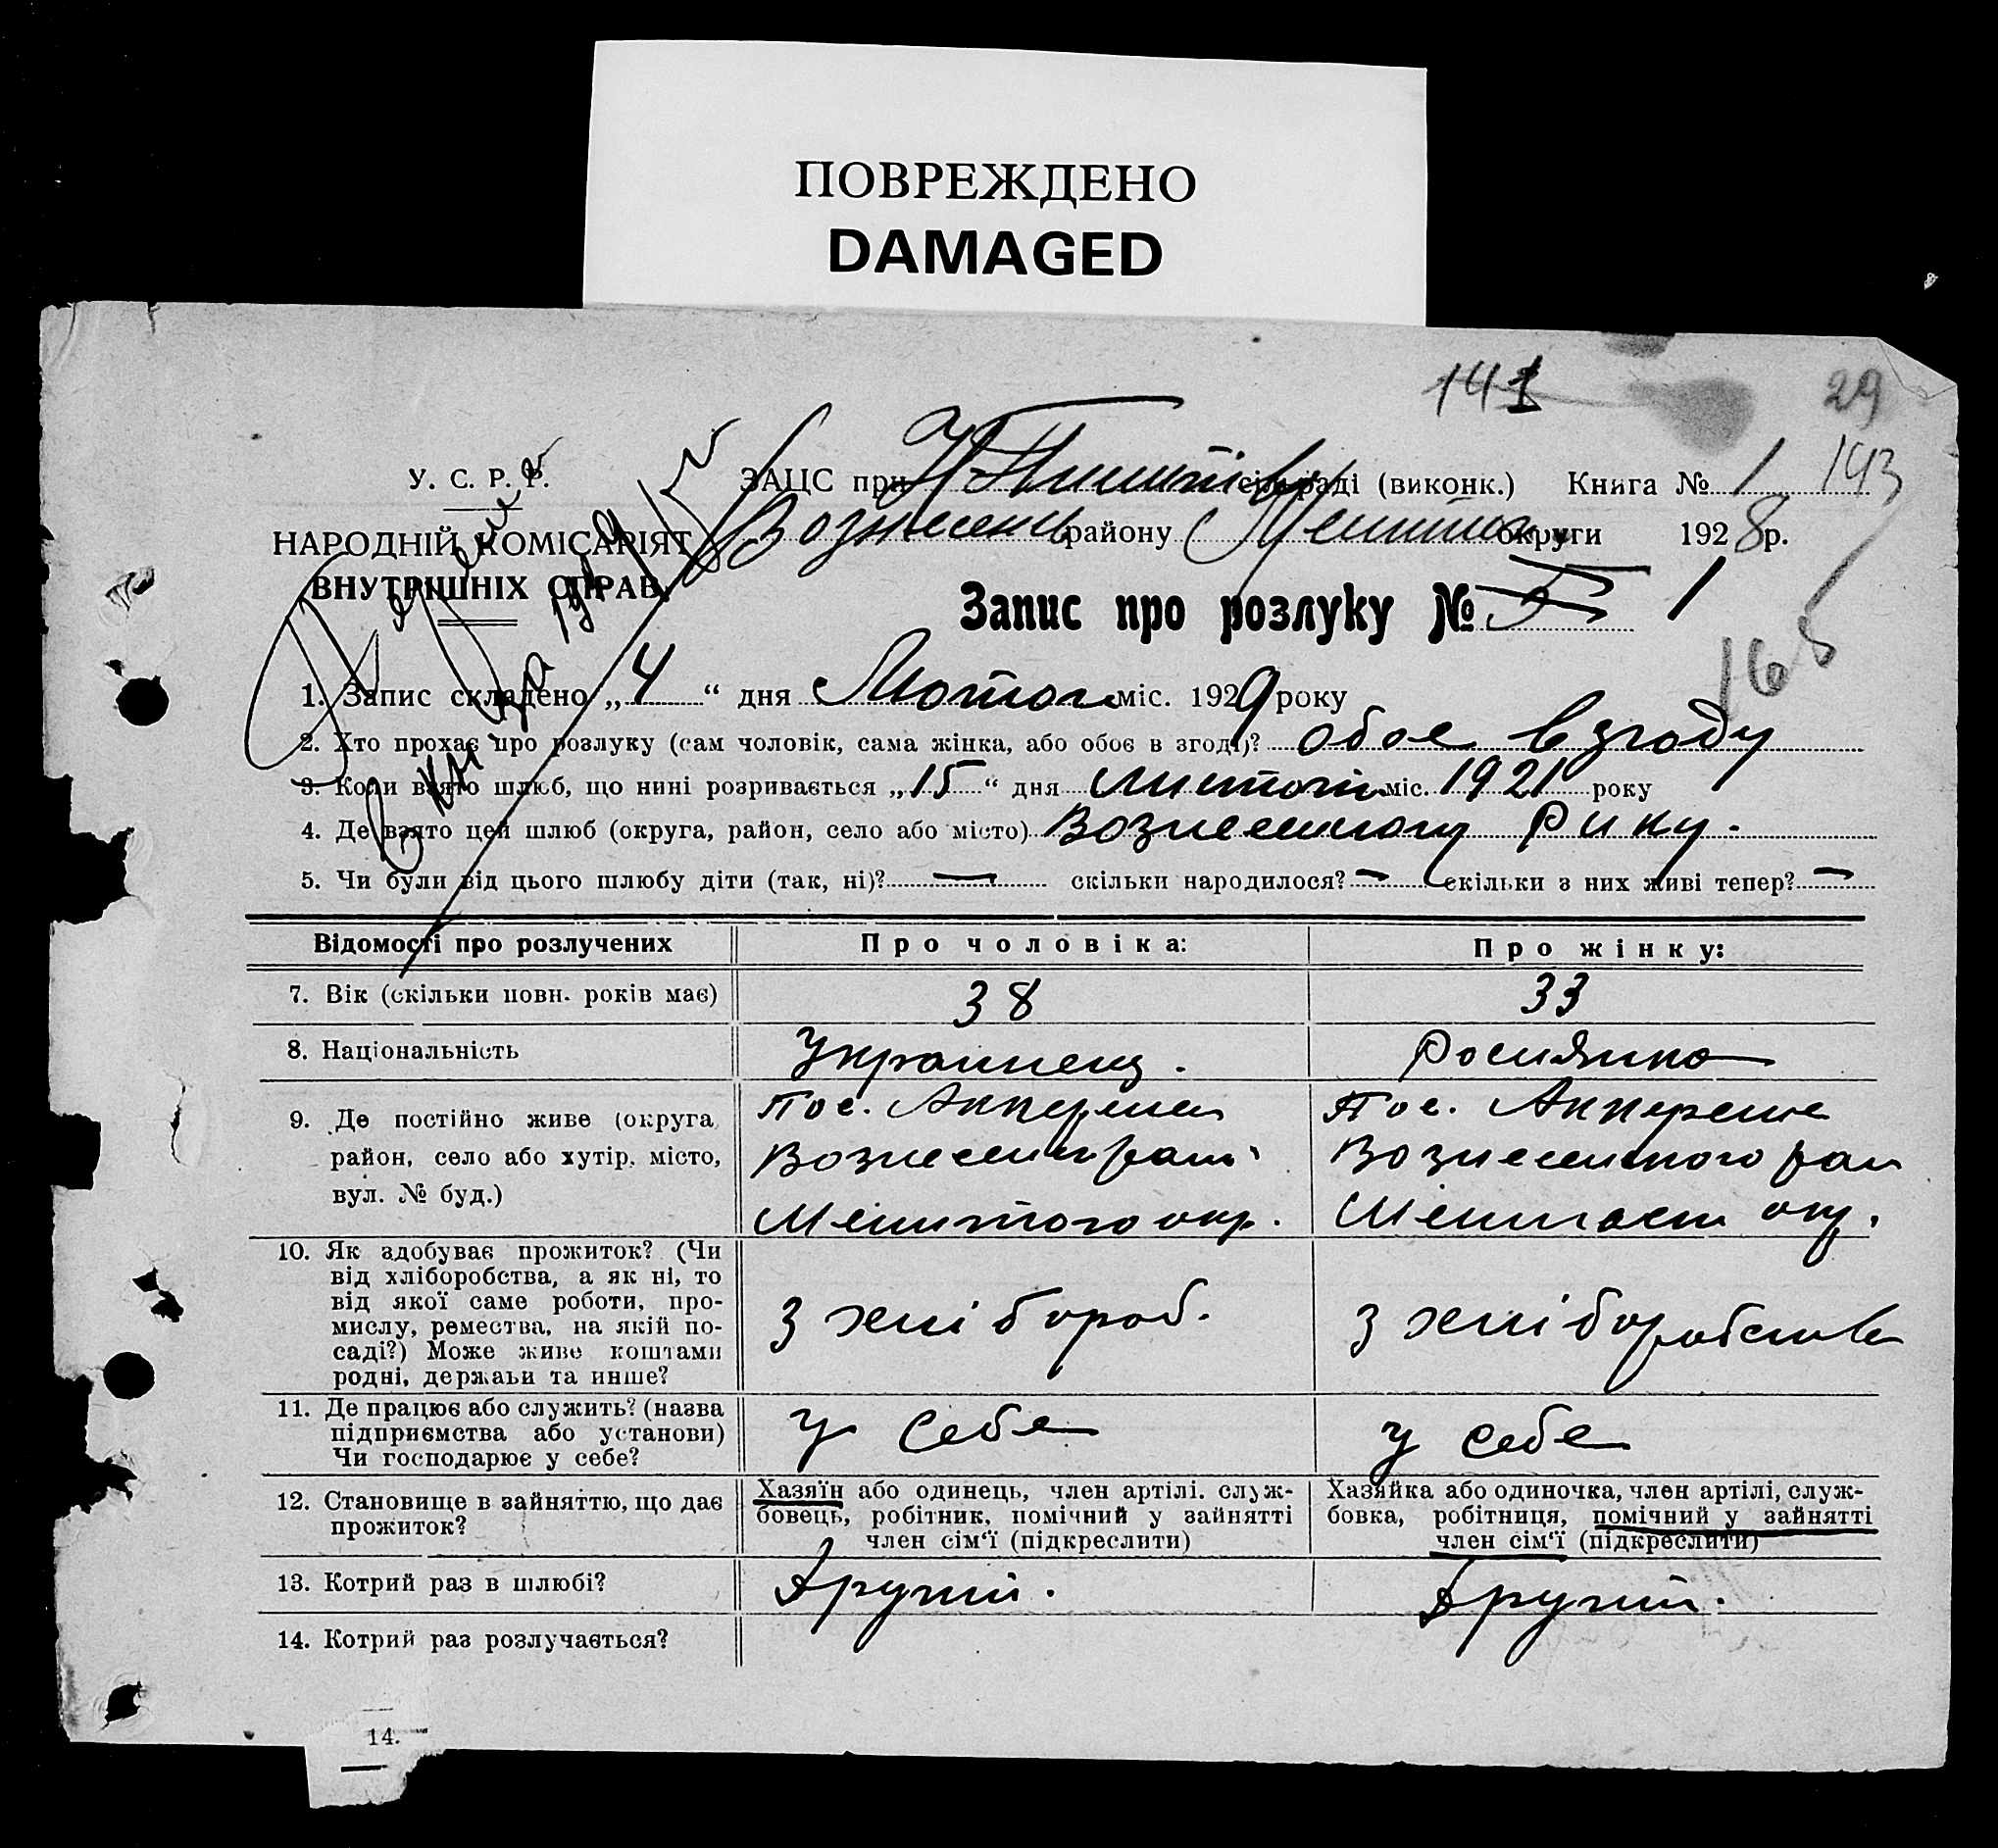 ПОВРЕЖДЕНО
DAMAGED
141
29
143
У. С. Р. Р.
НАРОДНІЙ КОМІСАРІЯТ
ВНУТРІШНІХ СПРАВ.
ЗАЦС при сільраді (виконк.) Книга № 1
Вознесенськ району округи 1928 р.
Запис про розлуку № 5 1
165
1. Запис складено „4“ дня Лютого міс. 1929 року
2. Хто прохає про розлуку (сам чоловік, сама жінка, або обоє в згоді)? обоє в згоду
3. Коли взято шлюб, що нині розривається „15“ дня міс. 1921 року
4. Де взято цей шлюб (округа, район, село або місто) Рику.
5. Чи були від цього шлюбу діти (так, ні)? — скільки народилося? — скільки з них живі тепер? —
Відомості про розлучених Про чоловіка: Про жінку:
7. Вік (скільки повн. років має) 38 33
8. Національність Украинець. Росиянка
9. Де постійно живе (округа, район, село або хутір, місто, вул. № буд.)
Пос.
Вознесенськ рай.
окр.
Пос.
Вознесенского рай
окр.
10. Як здобуває прожиток? (Чи
від хліборобства, а як ні, то
від якої саме роботи, про-
мислу, ремества, на якій по-
саді?) Може живе коштами
родні, держави та инше?
З хлібороб.
З хліборобства
11. Де працює або служить? (назва
підприємства або установи)
Чи господарює у себе?
У себе
У себе
12. Становище в зайняттю, що дає
прожиток?
Хазяїн або одинець, член артілі, служ-
бовець, робітник, помічний у зайнятті
член сім'ї (підкреслити)
Хазяйка або одиночка, член артілі, служ-
бовка, робітниця, помічний у зайнятті
член сім'ї (підкреслити)
13. Котрий раз в шлюбі? Другий. Другий.
14. Котрий раз розлучається?
14.